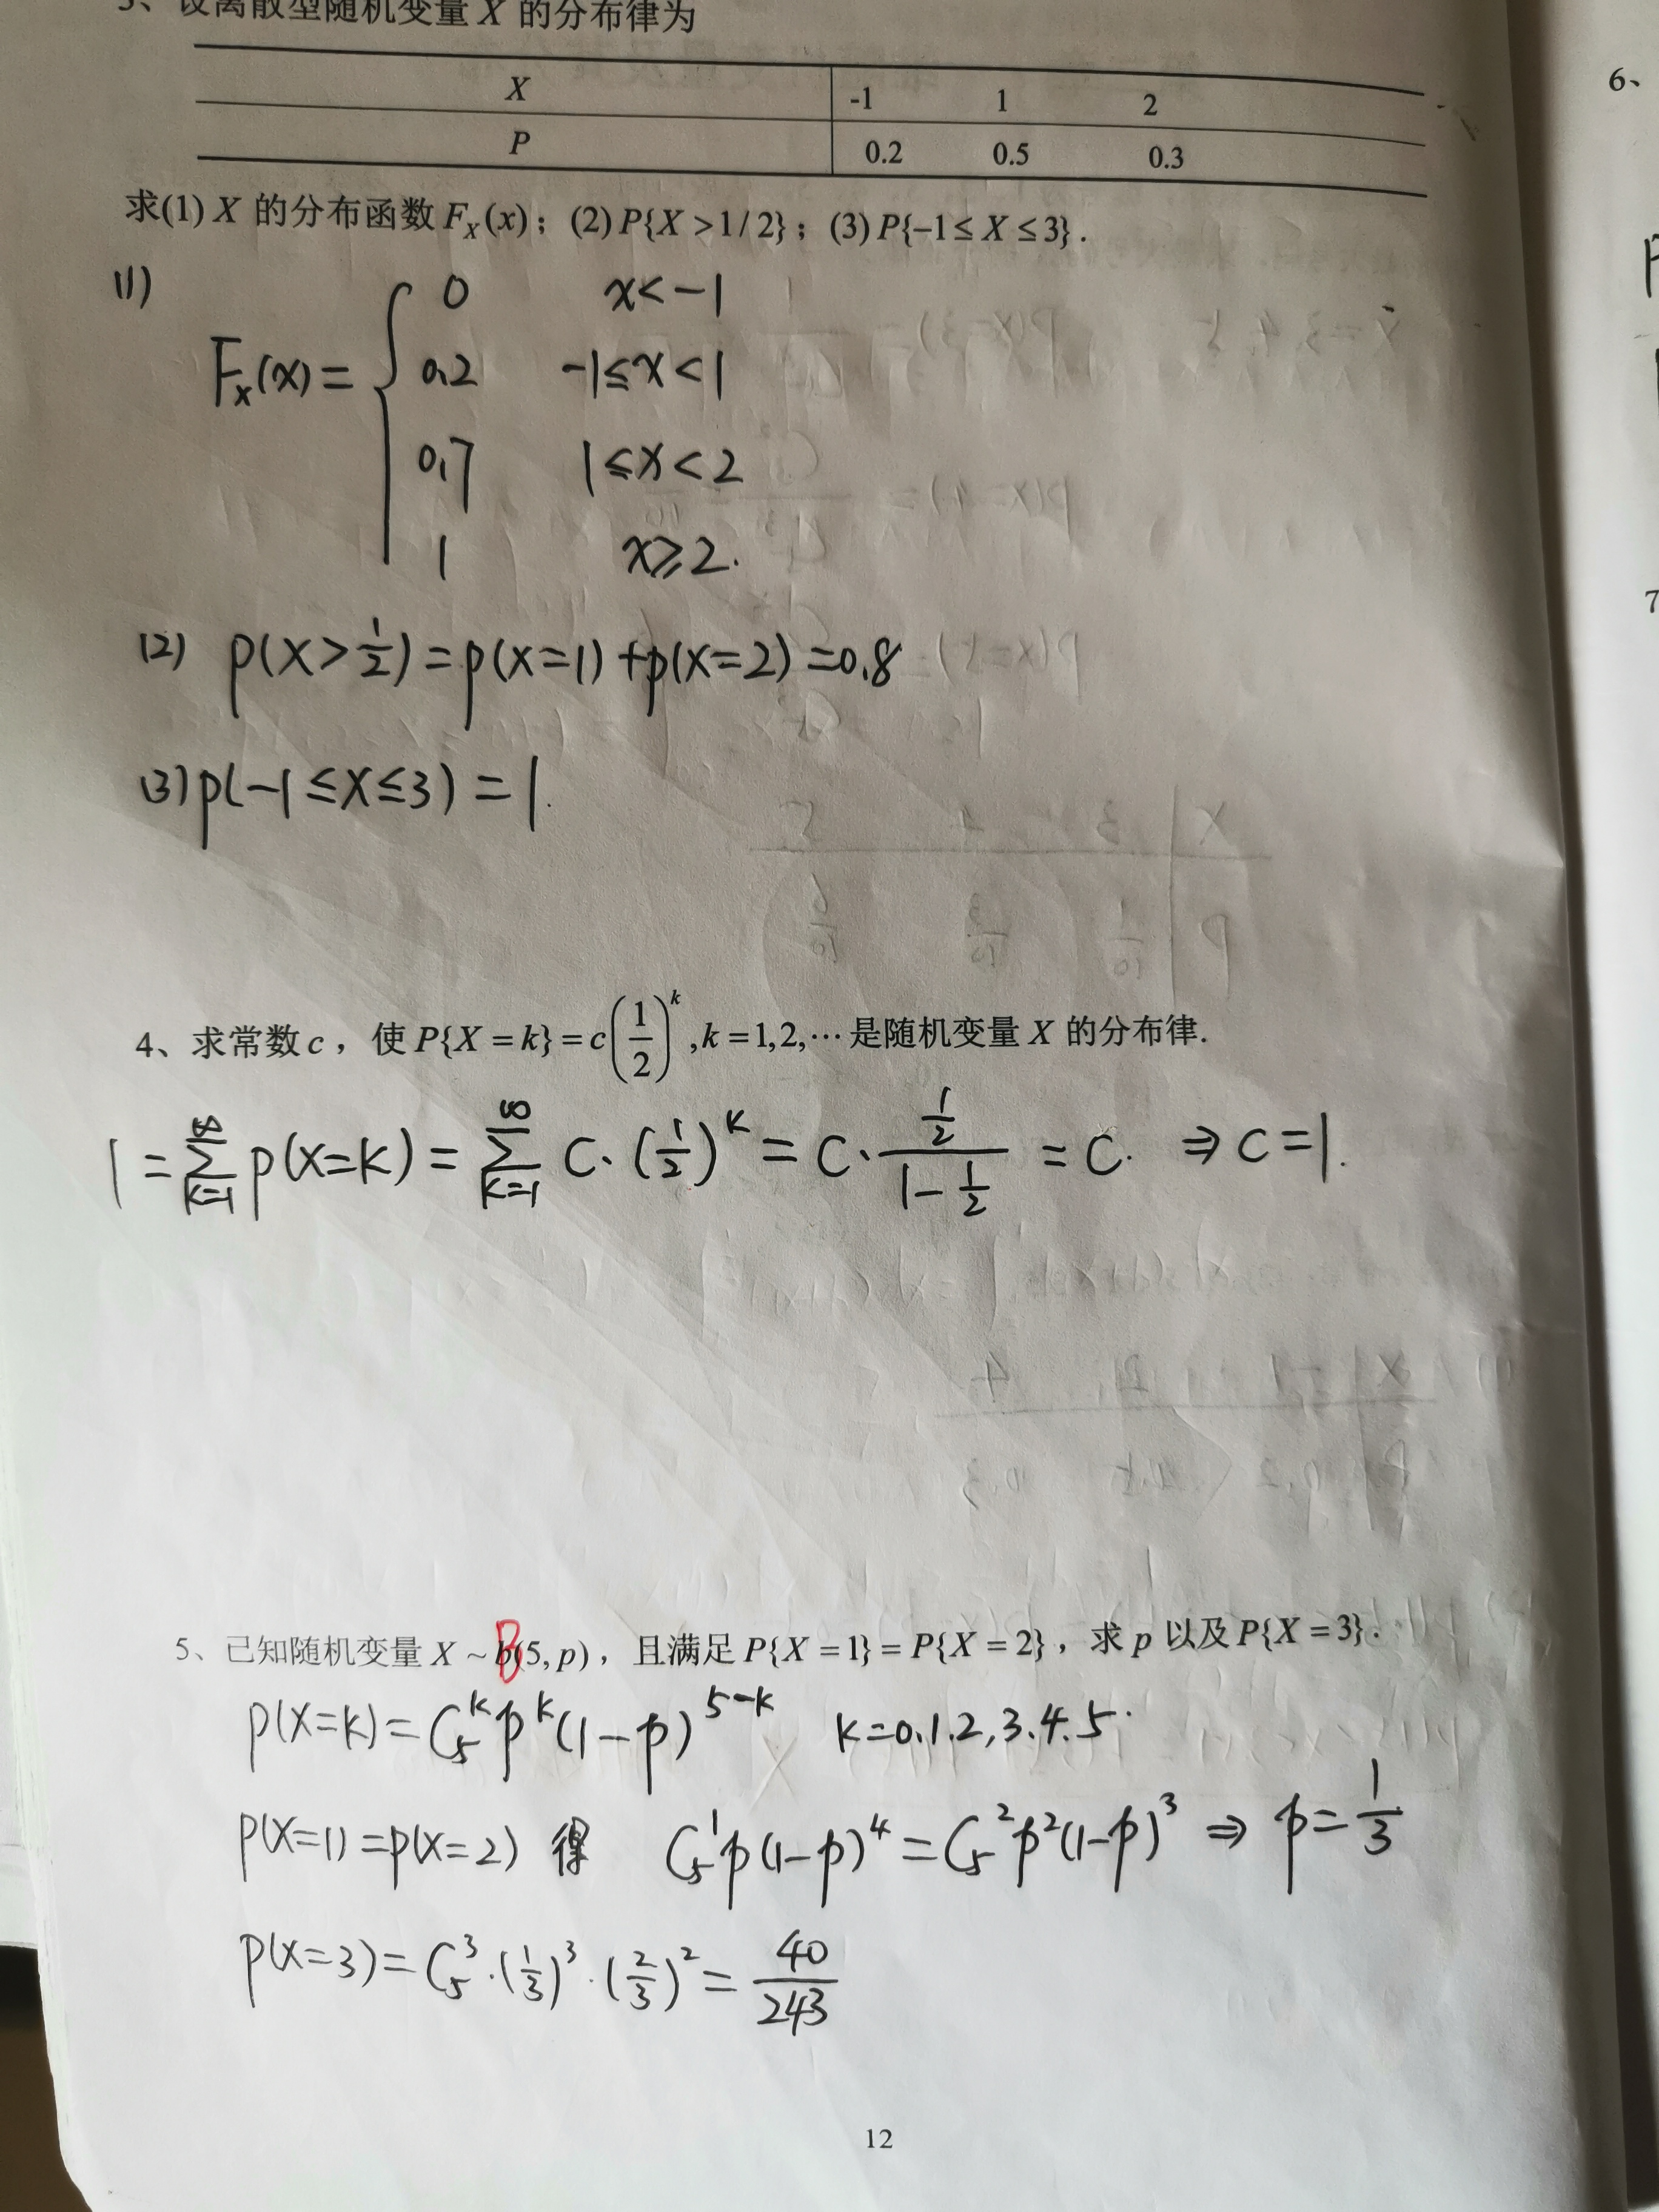 3、设离散型随机变量 X 的分布律为
X -1 1 2
P 0.2 0.5 0.3
求(1) X 的分布函数 F_X(x)；(2) P{X >1/2}；(3) P{-1≤ X ≤3}.
(1)
F_X(x) = { 0 x<-1
0.2 -1≤x<1
0.7 1≤x<2
1 x≥2.
(2) p(X>1/2)=p(X=1)+p(X=2)=0.8
(3) p(-1≤X≤3)=1.
4、求常数 c，使 P{X = k} = c(1/2)^k, k =1,2,⋯ 是随机变量 X 的分布律.
1=∑_{k=1}^{∞} p(X=k)=∑_{k=1}^{∞} C·(1/2)^k = C·(1/2)/(1-1/2) = C. ⇒ C=1.
5、已知随机变量 X ~ B(5, p)，且满足 P{X =1} = P{X = 2}，求 p 以及 P{X = 3}.
p(X=k)=C_5^k p^k (1-p)^{5-k} k=0.1.2,3.4.5.
p(X=1)=p(X=2) 得 C_5^1 p(1-p)^4=C_5^2 p^2(1-p)^3 ⇒ p=1/3
p(X=3)=C_5^3·(1/3)^3·(2/3)^2=40/243
12
6、
7